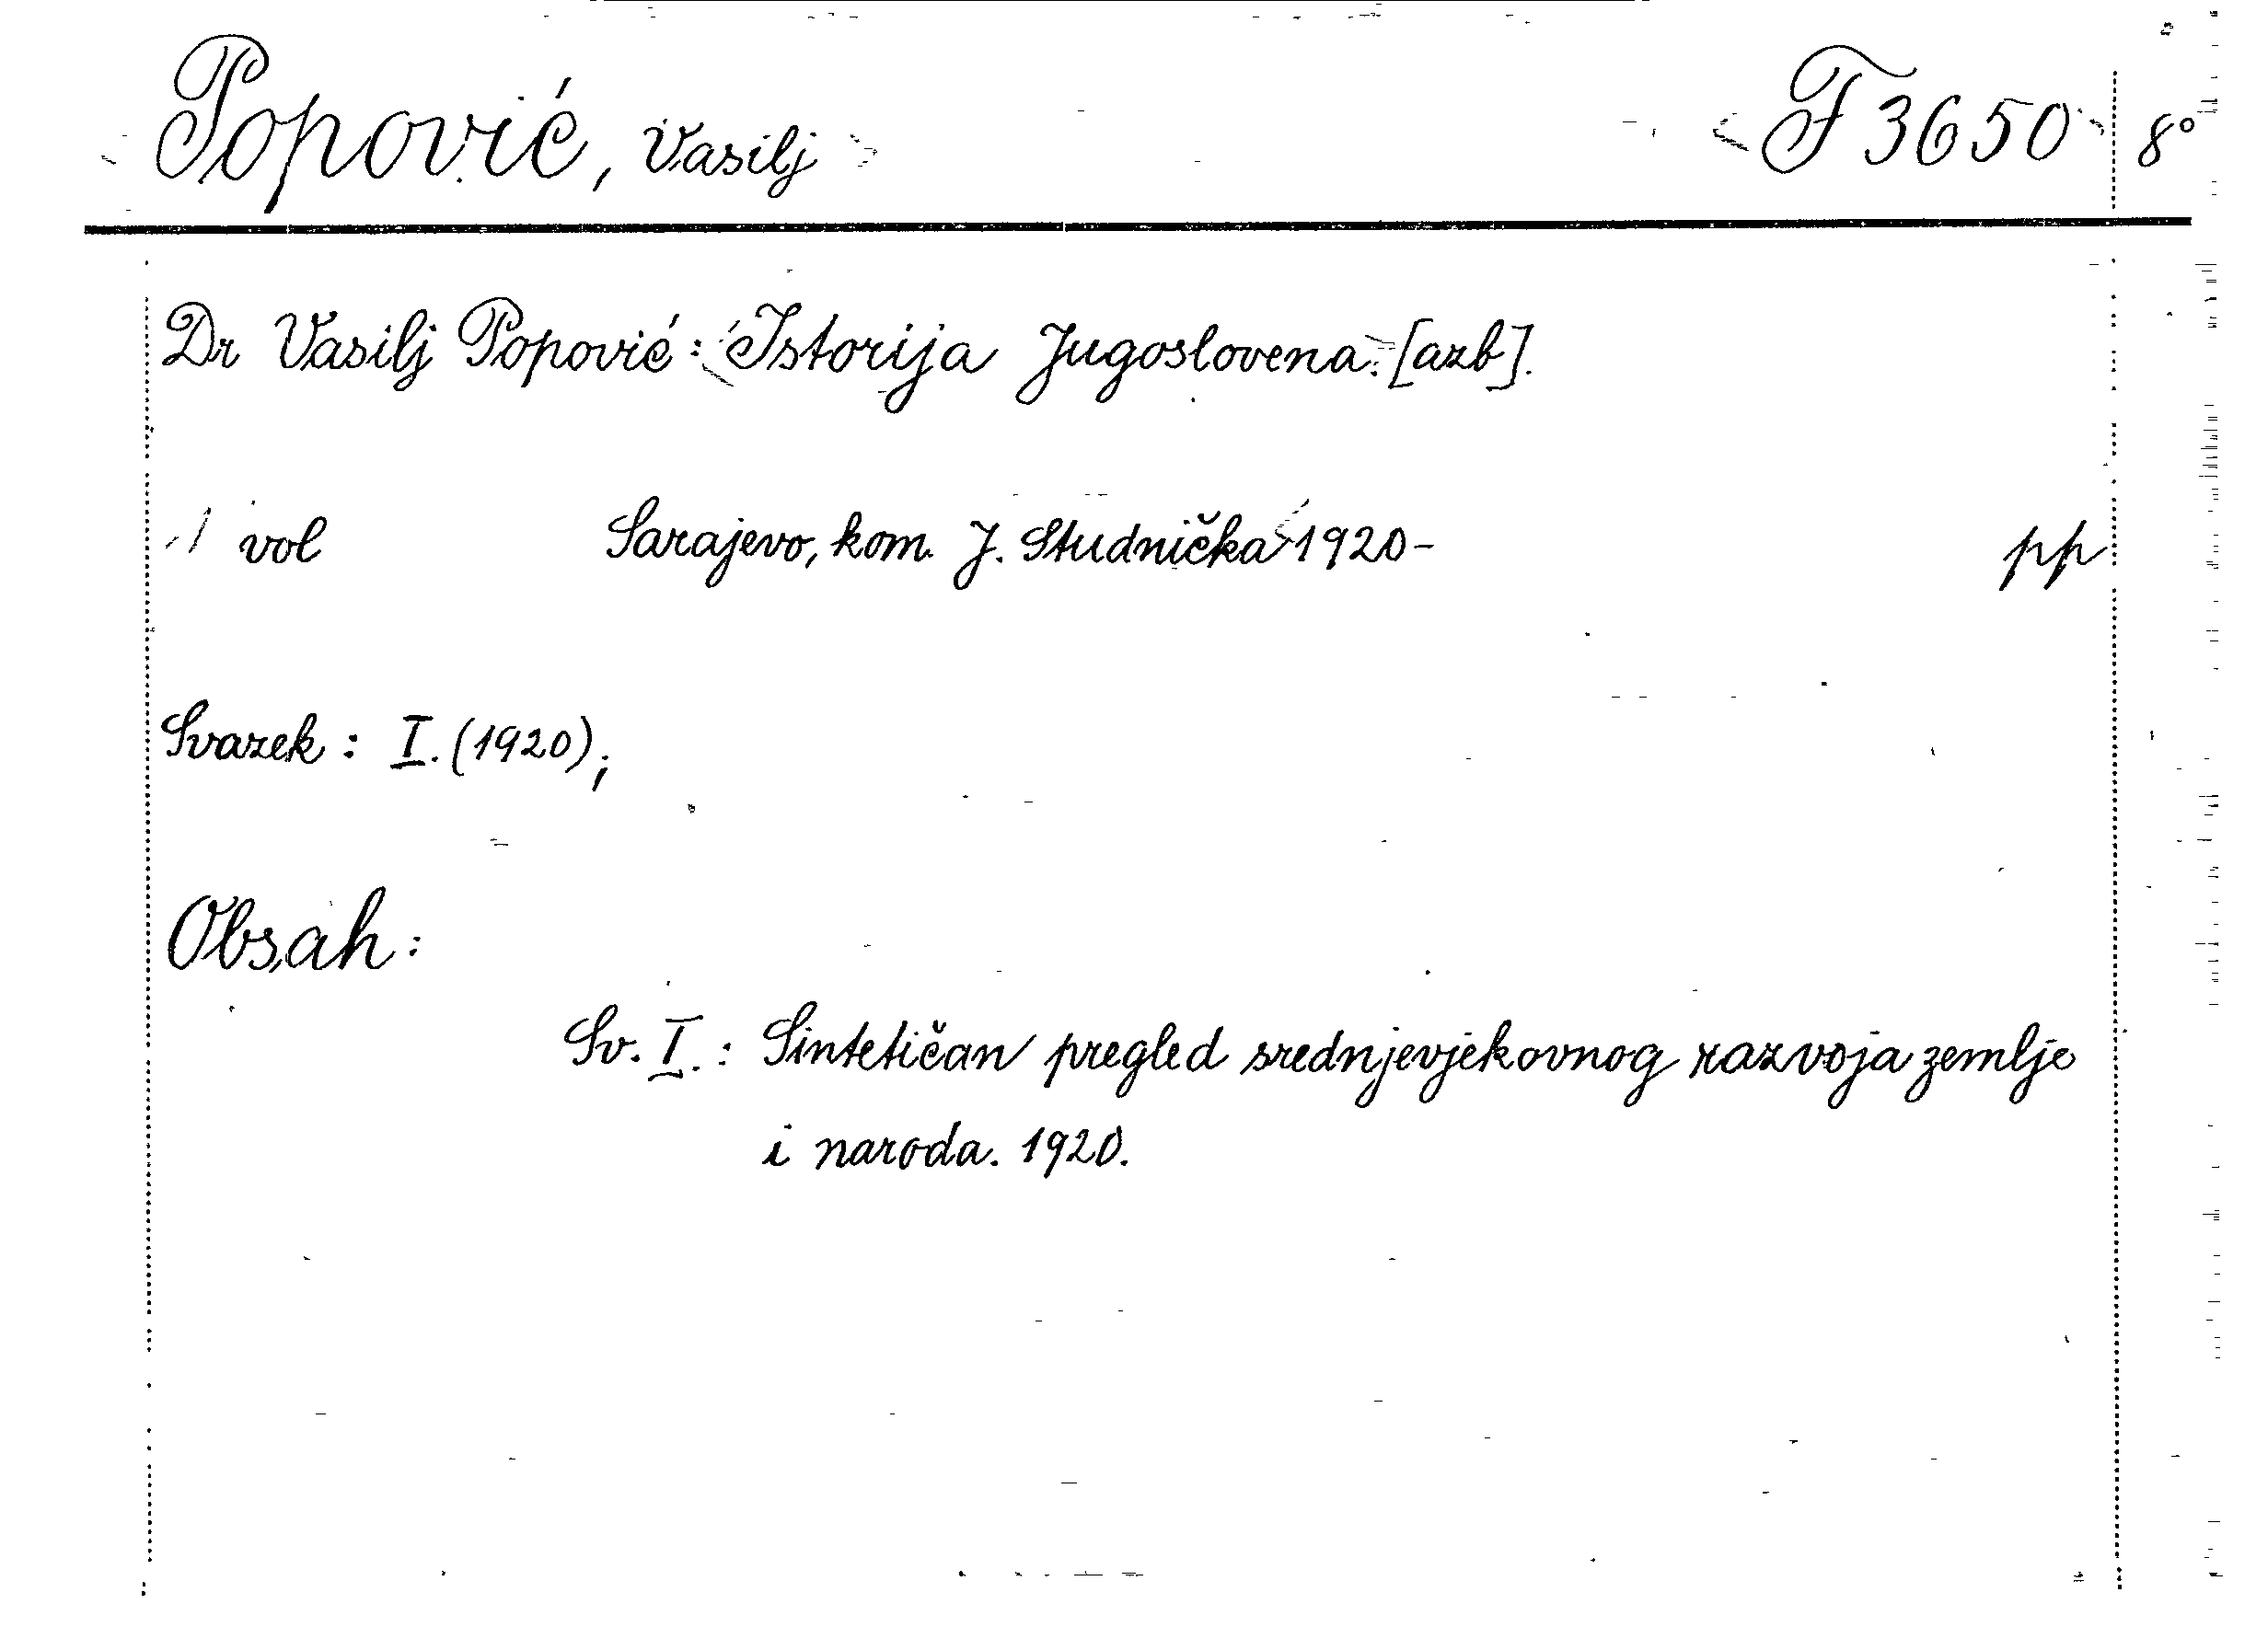 Popović, Vasilj F 3650 8°
Dr Vasilj Popović: Istorija Jugoslovena. [azb].
1 vol Sarajevo, kom. J. Studnička 1920- pp
Svazek: I. (1920);
Obsah:
Sv. I.: Sintetičan pregled srednjevjekovnog razvoja zemlje
i naroda. 1920.